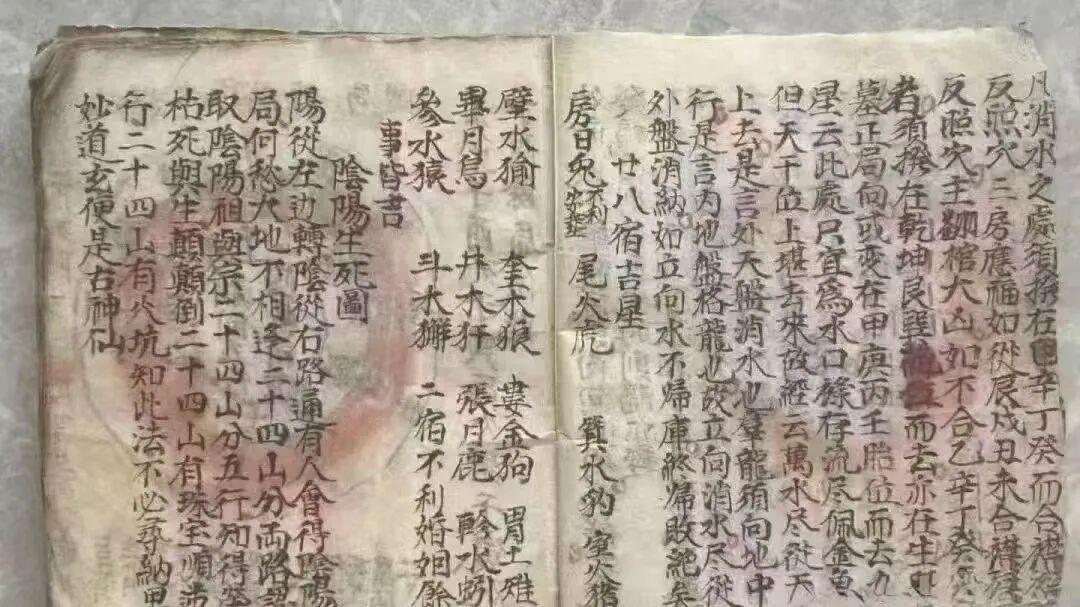 凡消水之處須撥在 辛丁癸而合襟
反照穴三房應福如從辰戌丑未合襟
反照穴主翻棺大凶如不合乙辛丁癸
者須撥在乾坤艮巽 而去亦在生
墓正局向或变在甲庚丙壬胎位而去
星云此處只宜爲水口餘存流尽佩金魚
但天干位上堪去來故經云萬水尽從天
上去是言外天盤消水也羣龍須向地中
行是言内地盤格龍也故立向消水尽從
外盤消納如立向水不歸庫終歸敗絶矣
廿八宿吉星
房日兎不利 尾火虎 箕水豹 室火猪
壁水㺄 奎木狼 婁金狗 胃土雉
畢月烏 井木犴 張月鹿 軫水蚓
參水猿 斗木獬 二宿不利婚姻餘
事皆吉
陰陽生死圖
陽從左边轉陰從右路通有人會得陰陽
局何愁大地不相逢二十四山分両路認
取陰陽祖與宗二十四山分五行知得
枯死與生顛顛倒二十四山有珠宝順
行二十四山有火坑知此法不必尋納甲
妙道玄便是右神仙